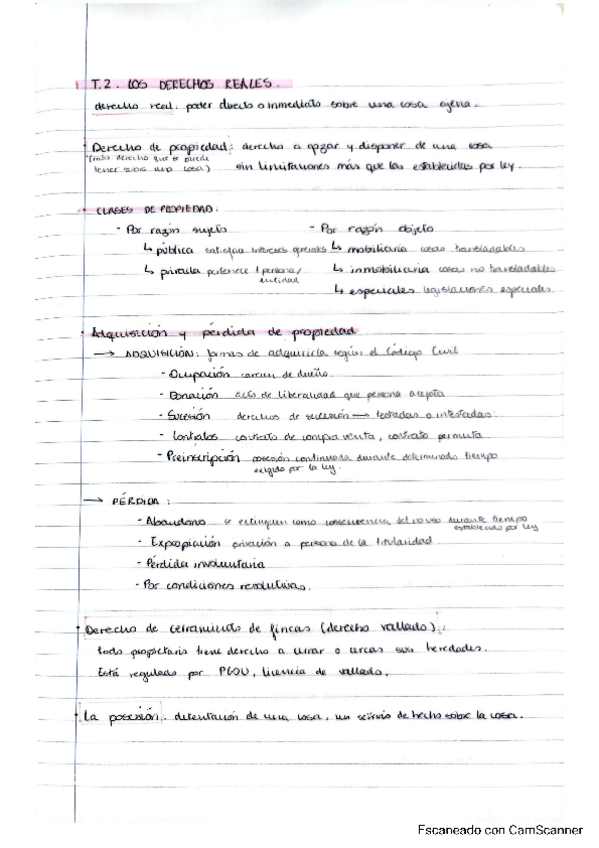 T.2. LOS DERECHOS REALES.
derecho real: poder directo o inmediato sobre una cosa ajena.
Derecho de propiedad: derecho a gozar y disponer de una cosa
(más derecho que se puede
tener sobre una cosa) sin limitaciones más que las establecidas por ley.
CLASES DE PROPIEDAD:
- Por razón sujeto - Por razón objeto
↳ pública satisfgan intereses generales ↳ mobiliaria cosas transladables
↳ privada pertenece 1 persona/ ↳ inmobiliaria cosas no transladables
entidad
↳ especiales legislaciones especiales.
Adquisición y pérdida de propiedad
→ ADQUISICIÓN: formas de adquirirla según el Código Civil
- Ocupación carecen de dueño.
- Donación acto de liberalidad que persona acepta
- Sucesión derechos de sucesión → testadas o intestadas.
- Contratos contrato de compra venta, contrato permuta
- Preinscripción posesión continuada durante determinado tiempo
exigido por la ley.
→ PÉRDIDA:
- Abandono se extinguen como consecuencia del no uso durante tiempo
establecido por ley
- Expropiación privación a persona de la titularidad.
- Pérdida involuntaria
- Por condiciones resolutivas.
Derecho de cerramiento de fincas (derecho vallado):
todo propietario tiene derecho a cerrar o cercas sus heredades.
Está regulado por PGOU, licencia de vallado.
La posesión: detentación de una cosa, un señorio de hecho sobre la cosa.
Escaneado con CamScanner